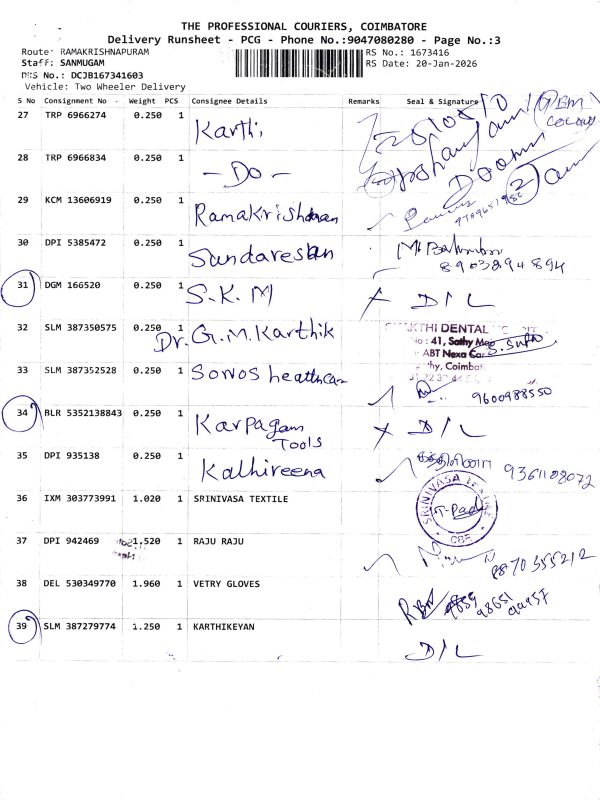 THE PROFESSIONAL COURIERS, COIMBATORE
Delivery Runsheet - PCG - Phone No.:9047080280 - Page No.:3
Route: RAMAKRISHNAPURAM
RS No.: 1673416
Staff: SANMUGAM
RS Date: 20-Jan-2026
DRS No.: DCJB167341603
Vehicle: Two Wheeler Delivery
S No Consignment No Weight PCS Consignee Details Remarks Seal & Signature
27 TRP 6966274 0.250 1 Karthi
28 TRP 6966834 0.250 1 - Do -
29 KCM 13606919 0.250 1 Ramakrishnan
30 DPI 5385472 0.250 1 Sundaresan
8903894894
31 DGM 166520 0.250 1 S.K.M D/L
32 SLM 387350575 0.250 1 Dr. G.M. Karthik
DENTAL
41, Sathy
ABT Nexa Car
Coimbat
33 SLM 387352528 0.250 1 Sonos healthcare
9600988550
34 BLR 5352138843 0.250 1 Karpagam
Tools
D/L
35 DPI 935138 0.250 1 Kathireena
9361108072
36 IXM 303773991 1.020 1 SRINIVASA TEXTILE
SRINIVASA
CBE
37 DPI 942469 1.520 1 RAJU RAJU
8870355212
38 DEL 530349770 1.960 1 VETRY GLOVES
39 SLM 387279774 1.250 1 KARTHIKEYAN
D/L